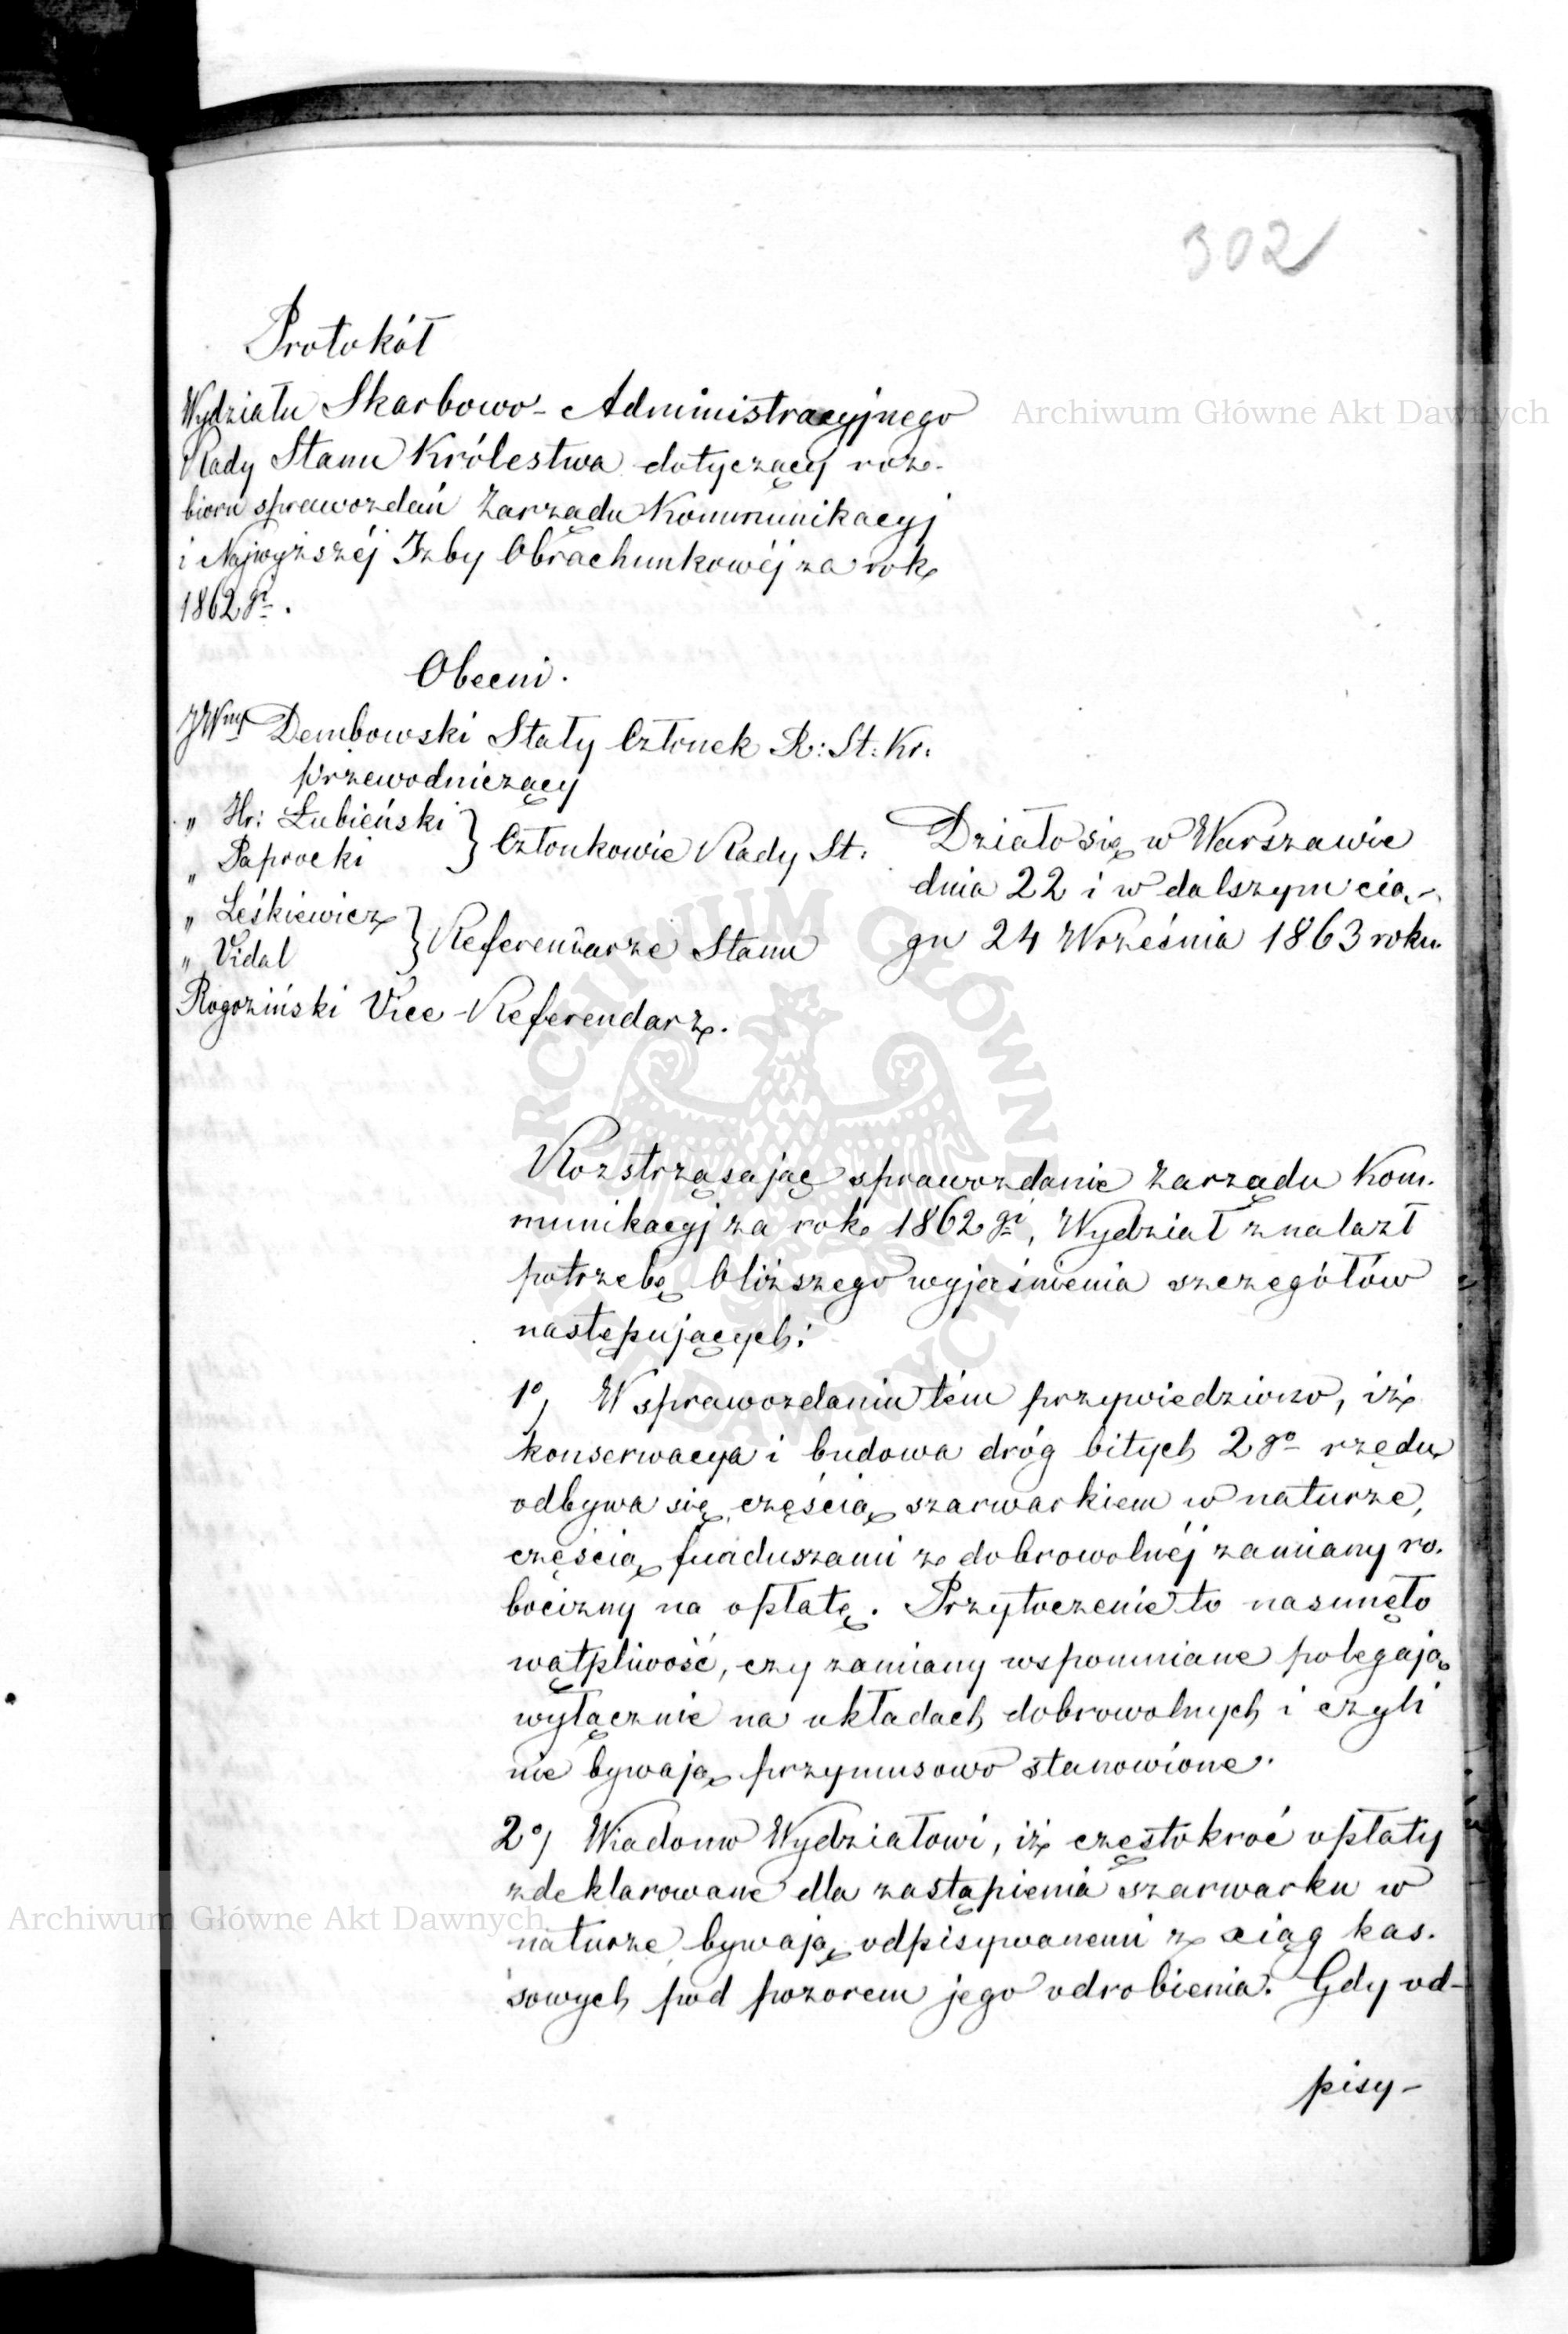 302
Protokół
Wydziału Skarbowo-Administracyjnego
Rady Stanu Królestwa dotyczący roz-
bioru sprawozdań Zarządu Kommunikacyj
i Najwyższéj Izby Obrachunkowéj za rok
1862 gi.
Obecni.
JWny Dembowski Stały Członek R: St: Kr:
przewodniczący
" Hr: Łubieński
" Paprocki } Członkowie Rady St:
" Leśkiewicz
" Vidal } Referendarze Stanu
Rogoziński Vice-Referendarz.
Działo się w Warszawie
dnia 22 i w dalszym cią-
gu 24 Września 1863 roku.
Rozstrząsając sprawozdanie Zarządu Kom-
munikacyj za rok 1862 gi, Wydział znalazł
potrzebę bliższego wyjaśnienia szczegółów
następujących:
1o, W sprawozdaniu tém przywiedziono, iż
konserwacya i budowa dróg bitych 2go rzędu
odbywa się częścią szarwarkiem w naturze,
częścią funduszami z dobrowolnéj zamiany ro-
bocizny na opłatę. Przytoczenie to nasunęło
wątpliwość, czy zamiany wspomniane polegają
wyłącznie na układach dobrowolnych i czyli
nie bywają przymusowo stanowione.
2o, Wiadomo Wydziałowi, iż częstokroć opłaty
zdeklarowane dla zastąpienia szarwarku w
naturze, bywają odpisywanemi z xiąg kas-
sowych pod pozorem jego odrobienia. Gdy od-
pisy-
Archiwum Główne Akt Dawnych
Archiwum Główne Akt Dawnych
ARCHIWUM GŁÓWNE AKT DAWNYCH